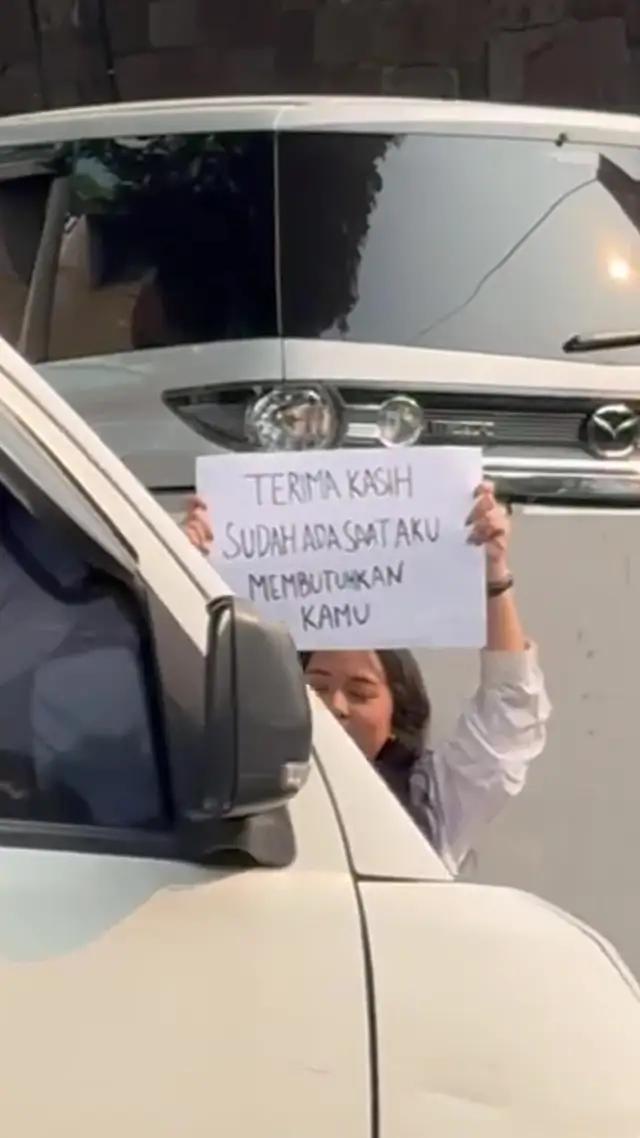 TERIMA KASIH
SUDAH ADA SAAT AKU
MEMBUTUHKAN
KAMU